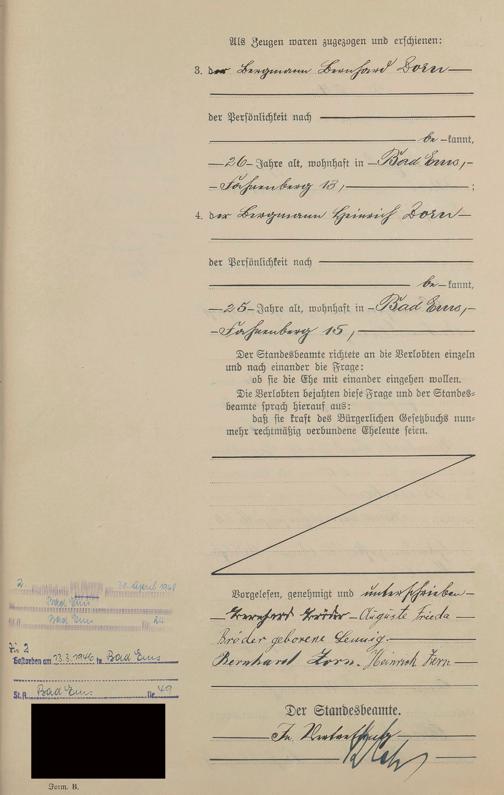 Als Zeugen waren zugezogen und erschienen:
3. der Bergmann Bernhard Dorn
der Persönlichkeit nach
be kannt,
26 Jahre alt, wohnhaft in Bad Ems,
Fahnenberg 15, ;
4. der Bergmann Heinrich Dorn
der Persönlichkeit nach
be kannt,
25 Jahre alt, wohnhaft in Bad Ems,
Fahnenberg 15,
Der Standesbeamte richtete an die Verlobten einzeln
und nach einander die Frage:
ob sie die Ehe mit einander eingehen wollen.
Die Verlobten bejahten diese Frage und der Standes-
beamte sprach hierauf aus:
daß sie kraft des Bürgerlichen Gesetzbuchs nun-
mehr rechtmäßig verbundene Eheleute seien.
Vorgelesen, genehmigt und unterschrieben
Bernhard Bröder Auguste Frieda
Bröder geborene
Bernhard Dorn. Heinrich Dorn
Der Standesbeamte.
In Vertretung
2. 30. April 1961
Bad Ems
Bad Ems 24
Zu 2
Gestorben am 13.3.1946 in Bad Ems
St.A. Bad Ems Nr. 49
Form. B.